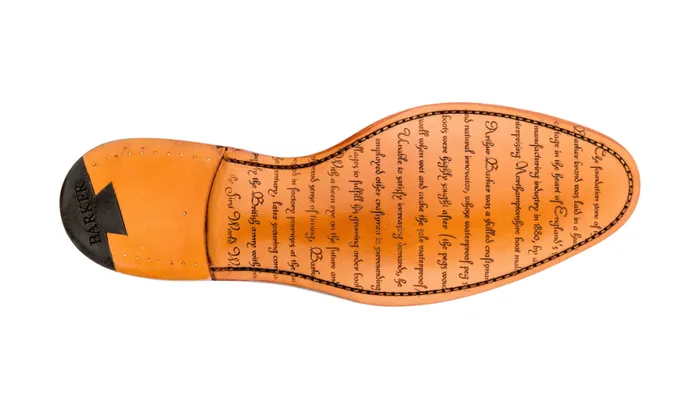 The foundation stone of
Barker brand was laid in a
cottage in the heart of England's
manufacturing industry in 1880, by a
enterprising Northamptonshire boot
Arthur Barker was a skilled craftsma
and natural innovator, whose waterproof peg s
boots were highly sought after (the pegs would
well when wet and make the sole waterproof
Unable to satisfy increasing demands, he
employed other craftsmen in surrounding
villages to fulfill his growing order book
With a keen eye on the future and
sound sense of timing, Bark
in factory premises at the
century, later securing
by the British army with
the First World W
BARKER